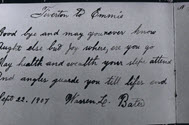 Tiverton to Emmie
Good bye and may you ever know
Naught else but joy where ere you go
May health and wealth your steps attend
And angles guarde you till lifes end
Sept 22. 1909 Warren L. Bates